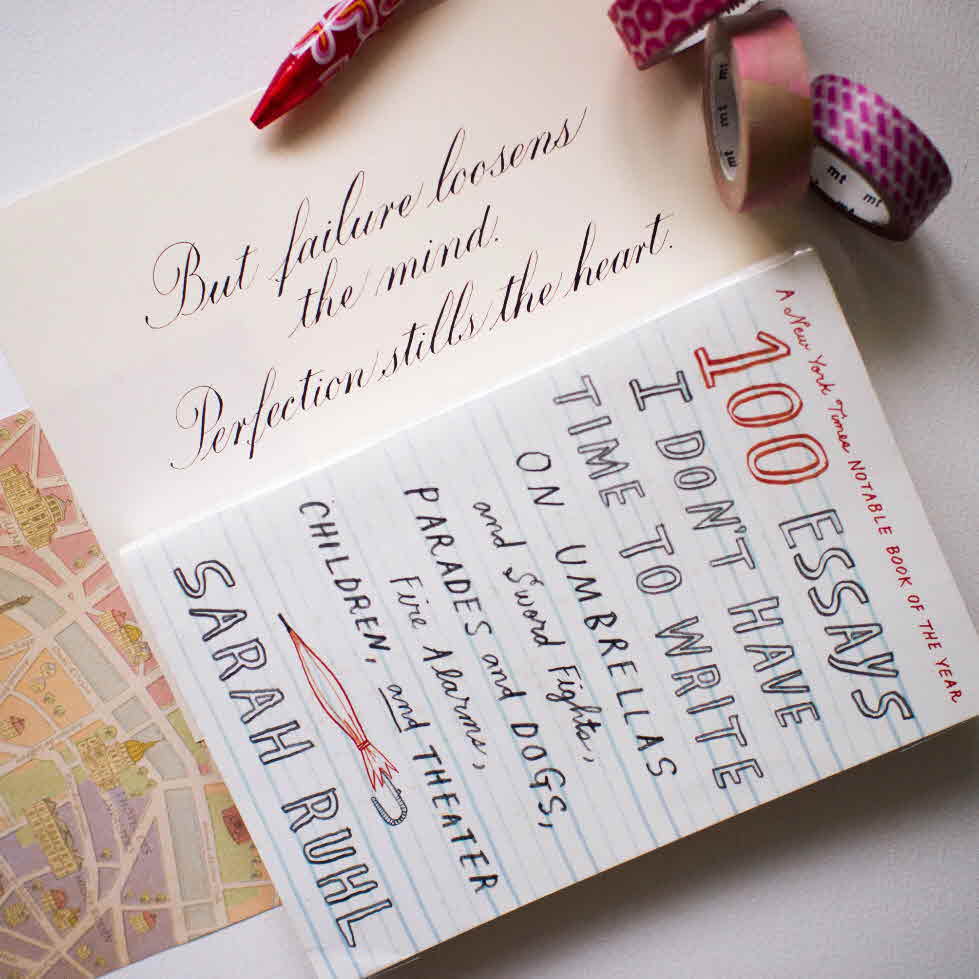 But failure loosens
the mind.
Perfection stills the heart.
A New York Times NOTABLE BOOK OF THE YEAR
100 ESSAYS
I DON'T HAVE
TIME TO WRITE
ON UMBRELLAS
and Sword Fights,
PARADES and DOGS,
Fire Alarms,
CHILDREN, and THEATER
SARAH RUHL
mt
mt
mt
mt
mt